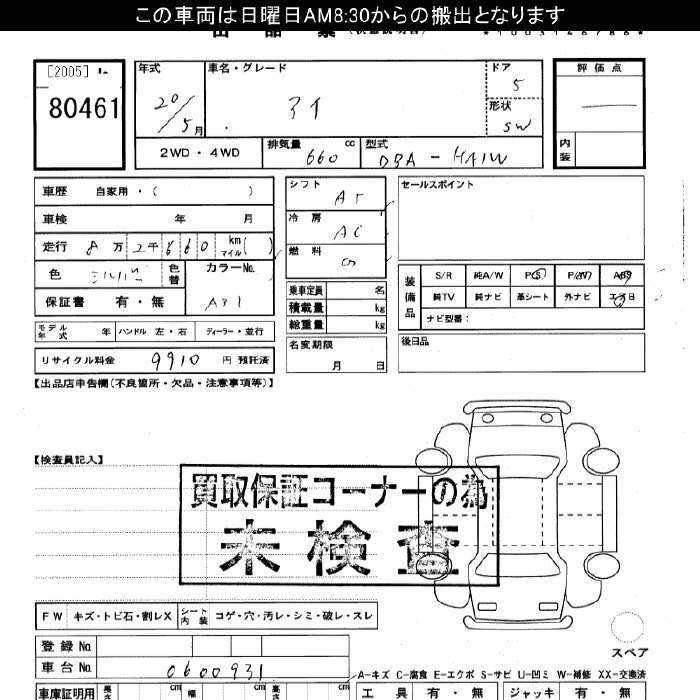 この車両は日曜日AM8:30からの搬出となります
出品票
[2005]
80461
年式 20/5月
車名・グレード アイ
ドア 5
形状 SW
評価点
内装
2WD・4WD
排気量 660 cc
型式 DBA - HA1W
車歴 自家用・( )
車検 年 月
走行 8万2千660 km マイル ( )
色 シルバー 色替
カラーNo. A31
保証書 有・無
モデル年式 年 ハンドル 左・右 ディーラー・並行
リサイクル料金 9910 円 預託済
シフト AT
冷房 AC
燃料
乗車定員 名
積載量 kg
総重量 kg
名変期限 月 日
セールスポイント
装備品
S/R 純A/W P/S P/W ABS
純TV 純ナビ 革シート 外ナビ エアB
ナビ型番：
後日品
【出品店申告欄(不良箇所・欠品・注意事項等)】
【検査員記入】
買取保証コーナーの為
未検査
FW キズ・トビ石・割レX シート内装 コゲ・穴・汚レ・シミ・破レ・スレ
スペア
登録No.
車台No. 0600931
A-キズ C-腐食 E-エクボ S-サビ U-凹ミ W-補修 XX-交換済
車庫証明用 長さ cm 幅 cm 高さ cm
工具 有・無 ジャッキ 有・無